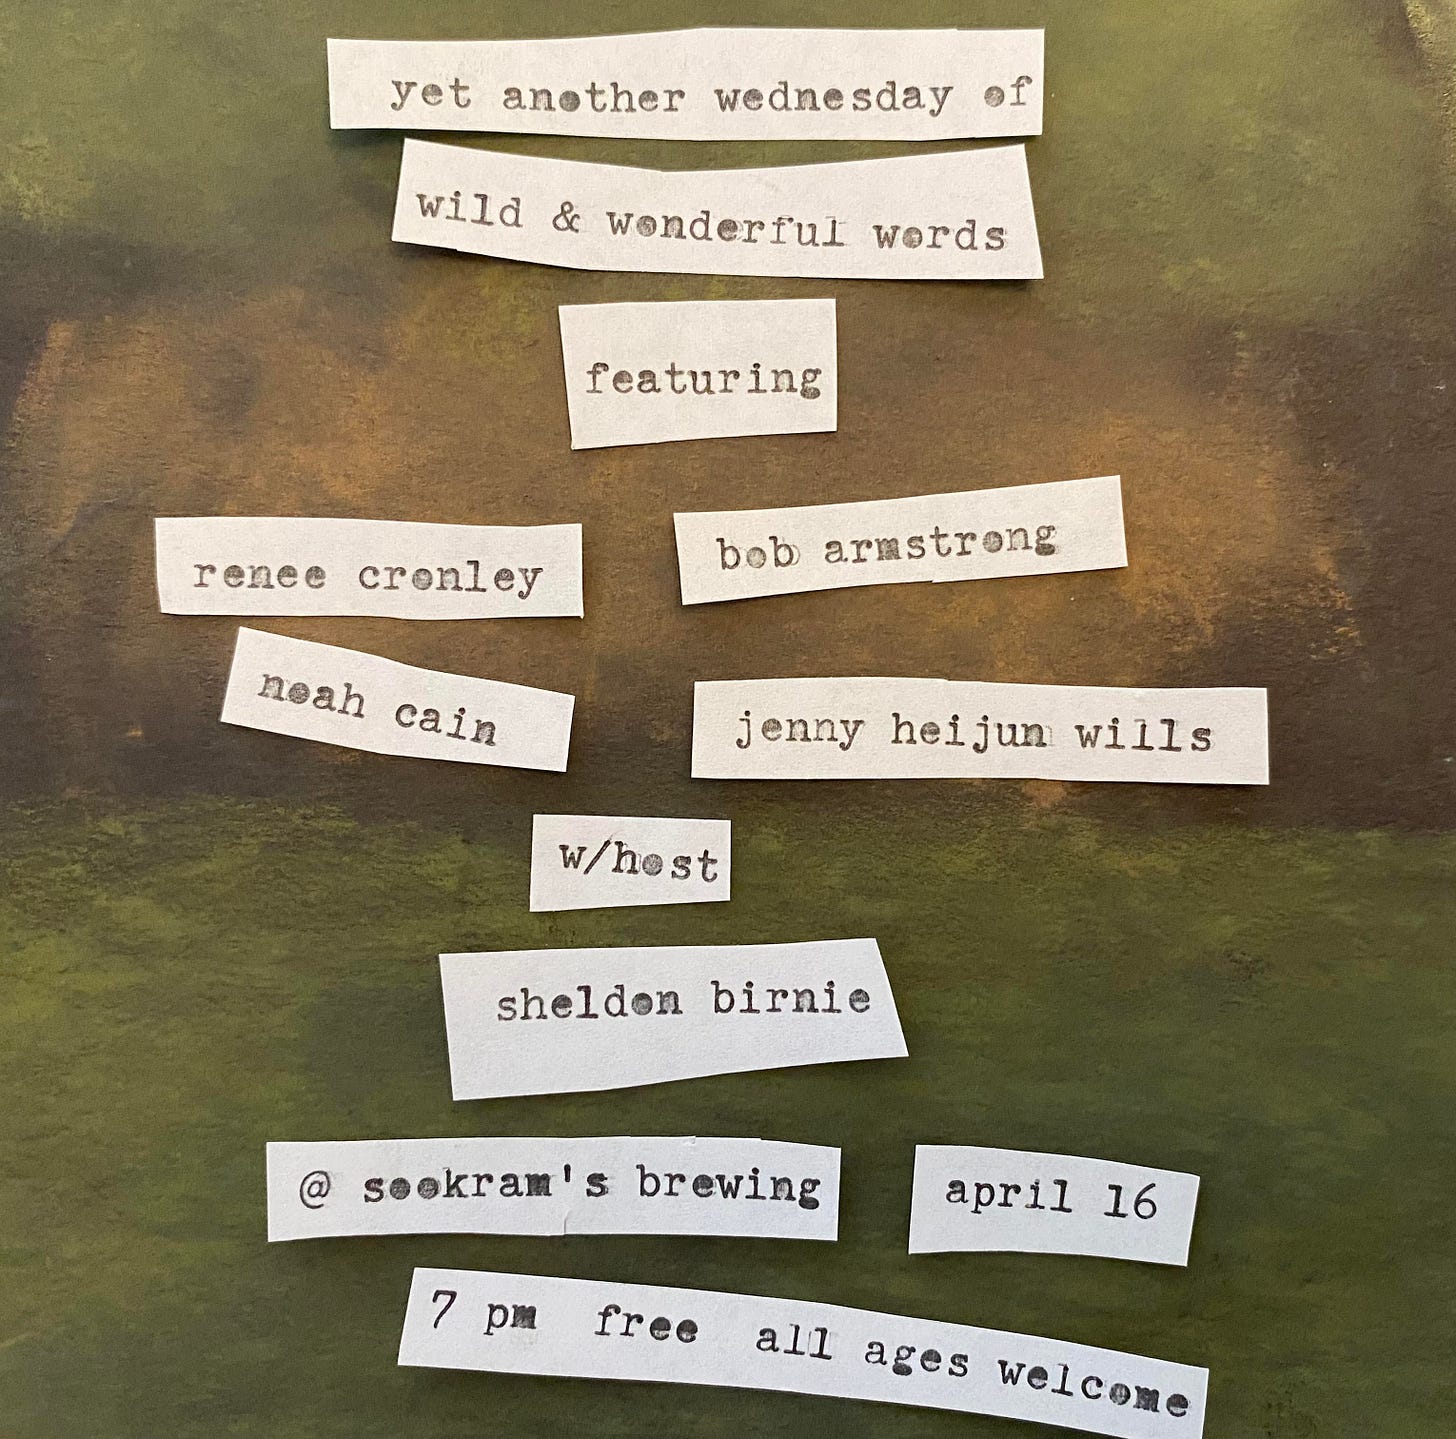 yet another wednesday of
wild & wonderful words
featuring
renee cronley
bob armstrong
noah cain
jenny heijun wills
w/host
sheldon birnie
@ sookram's brewing
april 16
7 pm free all ages welcome